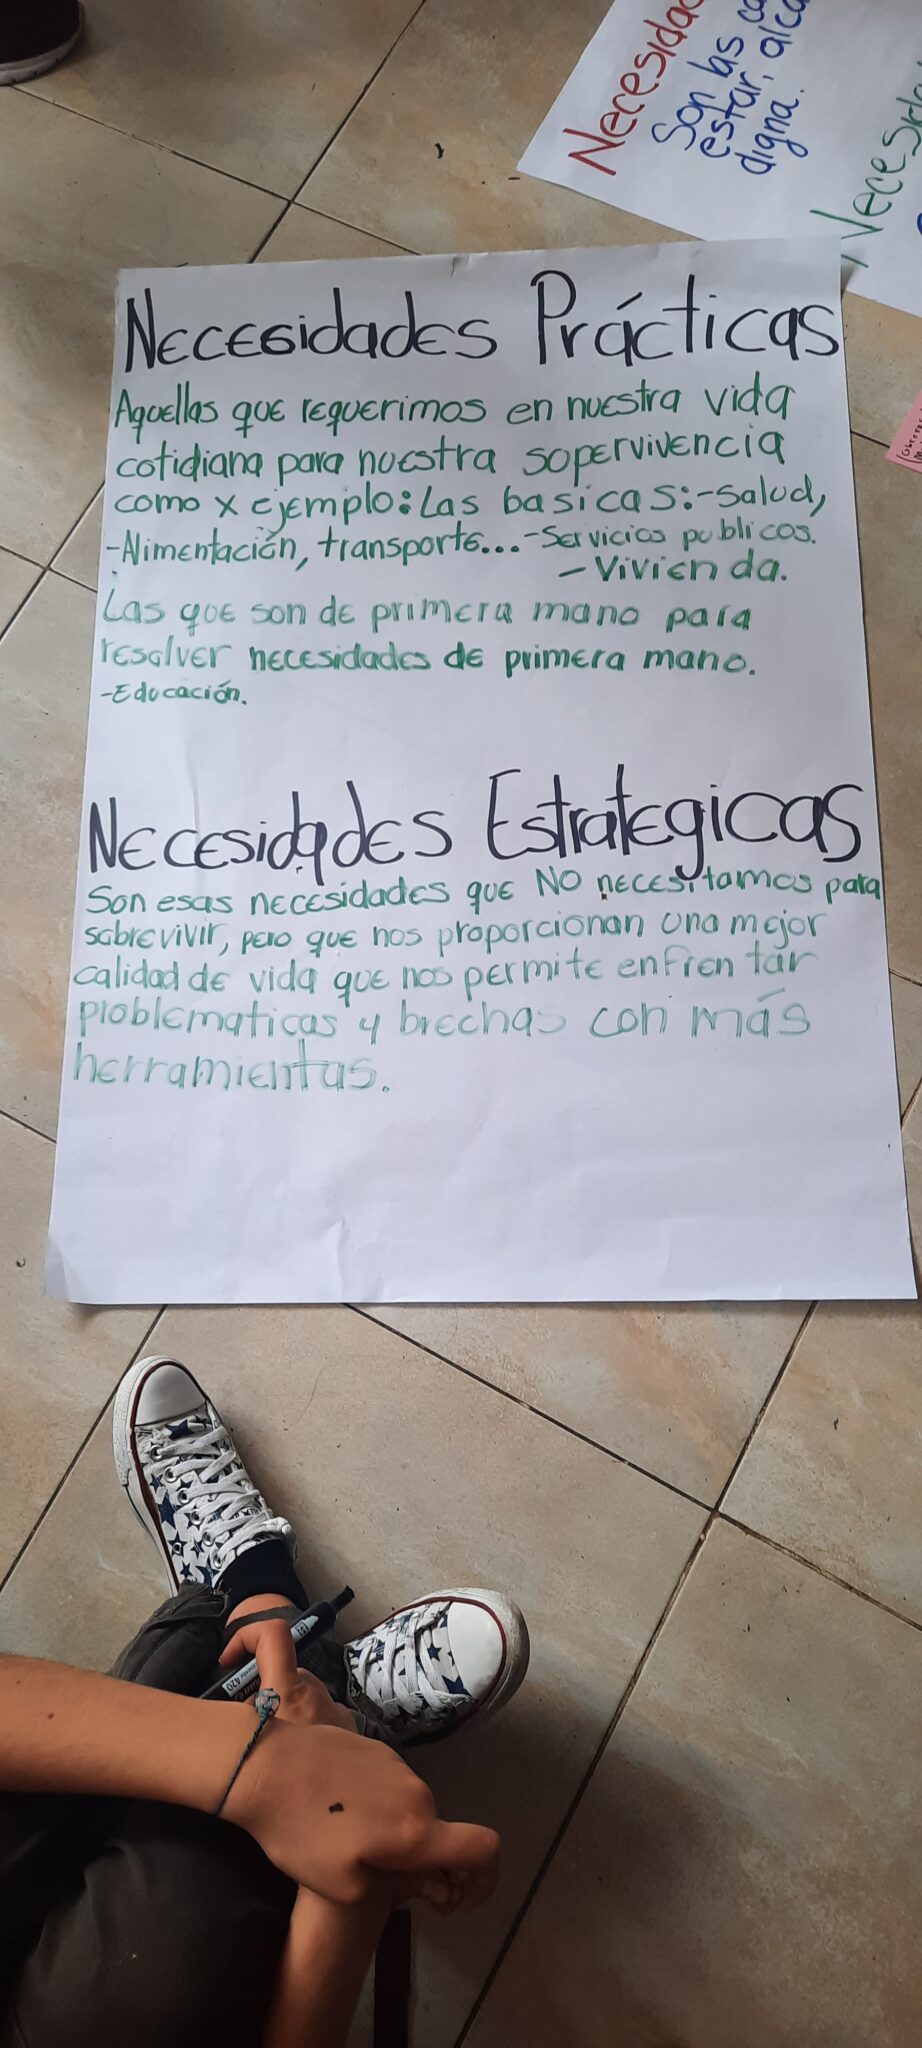 Necesidades Prácticas
Aquellas que requerimos en nuestra vida
cotidiana para nuestra sopervivencia
como x ejemplo: Las basicas:-Salud,
-Alimentación, transporte...-Servicios publicos.
-Vivienda.
Las que son de primera mano para
resolver necesidades de primera mano.
-Educación.
Necesidades Estrategicas
Son esas necesidades que NO necesitamos para
sobrevivir, pero que nos proporcionan una mejor
calidad de vida que nos permite enfrentar
problematicas y brechas con más
herramientas.
Necesidad
Son las
estar, alca
digna.
Necesida
420